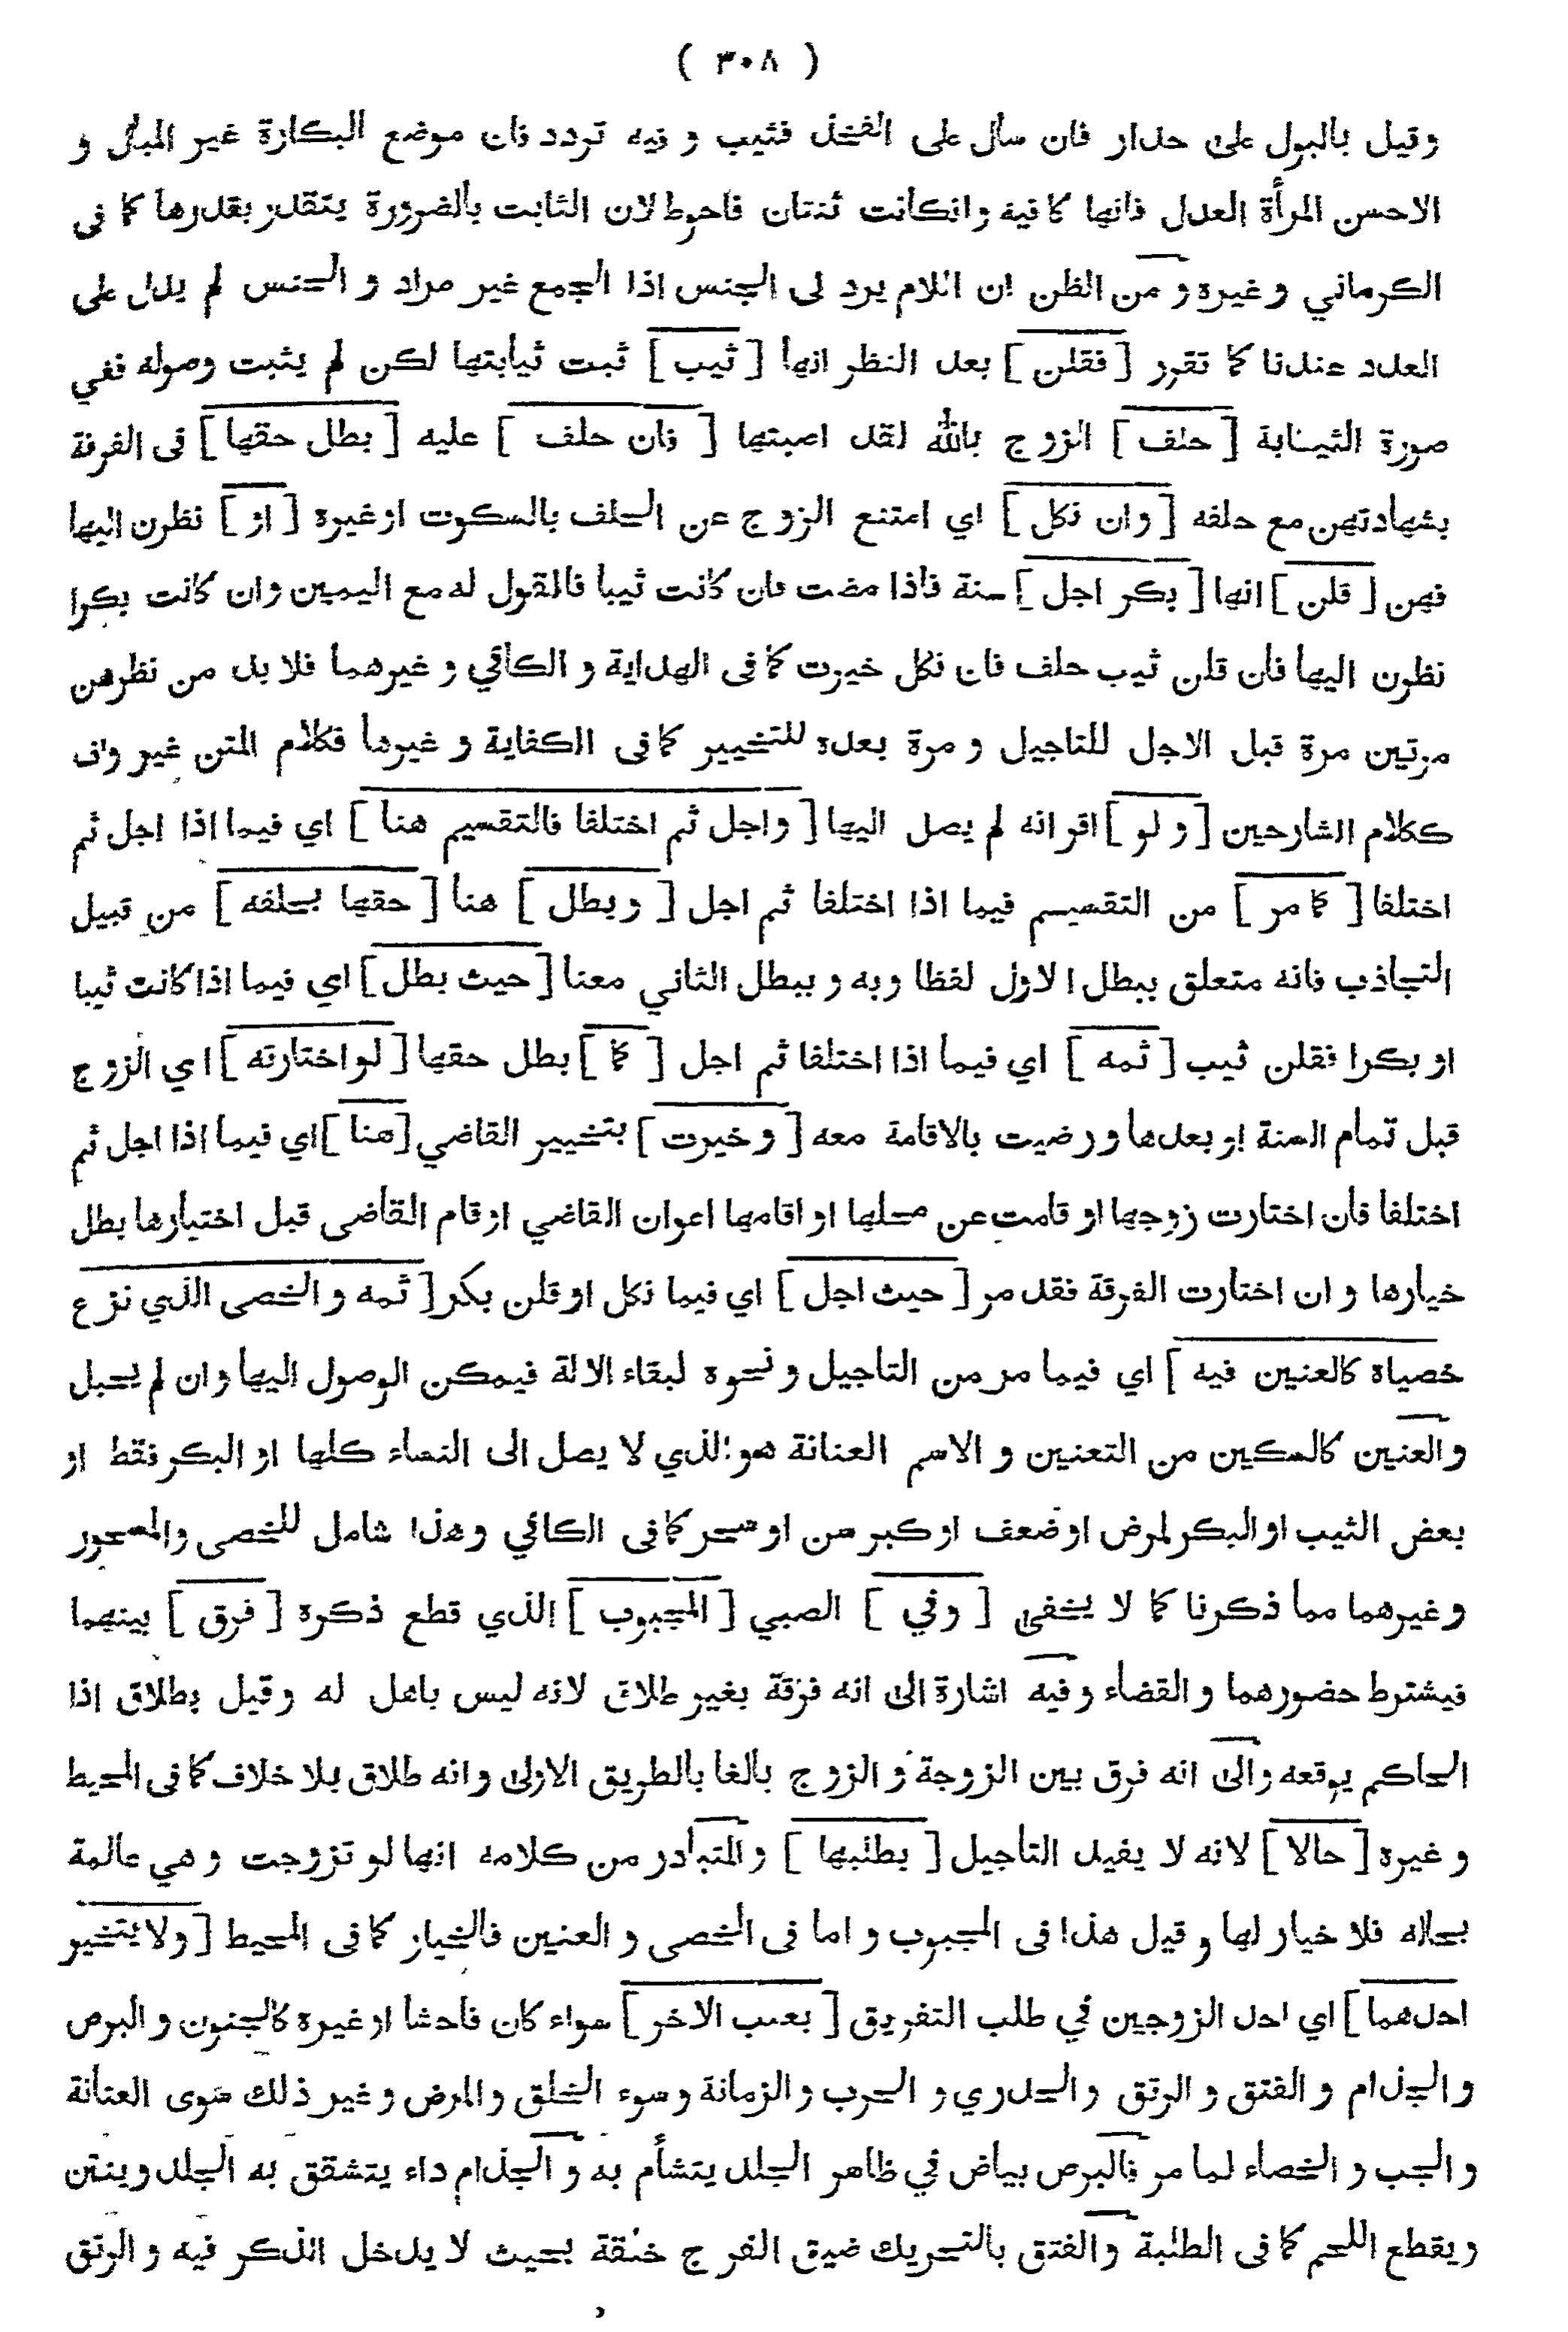 ( ٣٠٨ )
وقيل بالبول على جدار فان سال على الفخذ فثيب و فيه تردد فان موضع البكارة غير المبال و
الاحسن المرأة العدل فانها كافية و انكانت ثنتان فاحوط لان الثابت بالضرورة يتقدر بقدرها كما فى
الكرماني و غيره و من الظن ان اللام يرد لى الجنس اذا الجمع غير مراد و الجنس لم يدل على
العدد عندنا كما تقرر [ فقلن ] بعد النظر انها [ ثيب ] ثبت ثيابتها لكن لم يثبت وصوله ففي
صورة الثيابة [ حلف ] الزوج بالله لقد اصبتها [ فان حلف ] عليه [ بطل حقها ] فى الفرقة
بشهادتهن مع حلفه [ وان نكل ] اي امتنع الزوج عن الحلف بالسكوت او غيره [ او ] نظرن اليها
فهن [ قلن ] انها [ بكر اجل ] سنة فاذا مضت فان كانت ثيبا فالقول له مع اليمين وان كانت بكرا
نظرن اليها فان قلن ثيب حلف فان نكل خيرت كما فى الهداية و الكافي و غيرهما فلا بد من نظرهن
مرتين مرة قبل الاجل للتاجيل و مرة بعده للتخيير كما فى الكفاية و غيرها فكلام المتن غير واف
ككلام الشارحين [ و لو ] اقر انه لم يصل اليها [ واجل ثم اختلفا فالتقسيم هنا ] اي فيما اذا اجل ثم
اختلفا [ كما مر ] من التقسيم فيما اذا اختلفا ثم اجل [ و بطل ] هنا [ حقها بحلفه ] من قبيل
التجاذب فانه متعلق ببطل الاول لفظا و به و ببطل الثاني معنا [ حيث بطل ] اي فيما اذا كانت ثيبا
او بكرا فقلن ثيب [ ثمه ] اي فيما اذا اختلفا ثم اجل [ كما ] بطل حقها [ لو اختارته ] اي الزوج
قبل تمام السنة او بعدها و رضيت بالاقامة معه [ و خيرت ] بتخيير القاضي [ هنا ] اي فيما اذا اجل ثم
اختلفا فان اختارت زوجها او قامت عن مجلسها او اقامها اعوان القاضي او قام القاضى قبل اختيارها بطل
خيارها و ان اختارت الفرقة فقد مر [ حيث اجل ] اي فيما نكل او قلن بكر [ ثمه و الخصى الذي نزع
خصياه كالعنين فيه ] اي فيما مر من التاجيل و نحوه لبقاء الالة فيمكن الوصول اليها وان لم يحبل
والعنين كالسكين من التعنين و الاسم العنانة هو الذي لا يصل الى النساء كلها او البكر فقط او
بعض الثيب او البكر لمرض او ضعف او كبر سن او سحر كما فى الكافي و هذا شامل للخصى والمسحور
و غيرهما مما ذكرنا كما لا يخفى [ وفي ] الصبي [ المجبوب ] الذي قطع ذكره [ فرق ] بينهما
فيشترط حضورهما و القضاء و فيه اشارة الى انه فرقة بغير طلاق لانه ليس باهل له و قيل بطلاق اذا
الحاكم يوقعه والى انه فرق بين الزوجة و الزوج بالغا بالطريق الاولى و انه طلاق بلا خلاف كما فى المحيط
و غيره [ حالا ] لانه لا يفيد التأجيل [ بطلبها ] و المتبادر من كلامه انها لو تزوجت و هي عالمة
بحاله فلا خيار لها و قيل هذا فى المجبوب و اما فى الخصى و العنين فالخيار كما فى المحيط [ ولا يتخير
احدهما ] اي احد الزوجين في طلب التفريق [ بعيب الاخر ] سواء كان فاحشا او غيره كالجنون و البرص
و الجذام و الفتق و الرتق و الجدري و الجرب و الزمانة و سوء الخلق و المرض و غير ذلك سوى العنانة
و الجب و الخصاء لما مر فالبرص بياض في ظاهر الجلد يتشأم به و الجذام داء يتشقق به الجلد و ينتن
و يقطع اللحم كما فى الطلبة والفتق بالتحريك ضيق الفرج خلقة بحيث لا يدخل الذكر فيه و الرتق